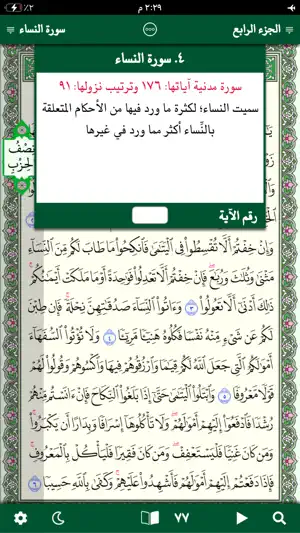 ٢:٣٩ م
٪٢
الجزء الرابع
سورة النساء
٤. سورة النساء
سورة مدنية آياتها: ١٧٦ وترتيب نزولها: ٩١
سميت النساء؛ لكثرة ما ورد فيها من الأحكام المتعلقة
بالنِّساء أكثر مما ورد في غيرها
رقم الآية
نِصْفُ
الحِزْبِ
وَإِنْ خِفْتُمْ أَلَّا تُقْسِطُوا۟ فِى ٱلْيَتَـٰمَىٰ فَٱنكِحُوا۟ مَا طَابَ لَكُم مِّنَ ٱلنِّسَآءِ
مَثْنَىٰ وَثُلَـٰثَ وَرُبَـٰعَ ۖ فَإِنْ خِفْتُمْ أَلَّا تَعْدِلُوا۟ فَوَٰحِدَةً أَوْ مَا مَلَكَتْ أَيْمَـٰنُكُمْ ۚ
ذَٰلِكَ أَدْنَىٰٓ أَلَّا تَعُولُوا۟ ٣ وَءَاتُوا۟ ٱلنِّسَآءَ صَدُقَـٰتِهِنَّ نِحْلَةً ۚ فَإِن طِبْنَ
لَكُمْ عَن شَىْءٍ مِّنْهُ نَفْسًا فَكُلُوهُ هَنِيٓـًٔا مَّرِيٓـًٔا ٤ وَلَا تُؤْتُوا۟ ٱلسُّفَهَآءَ
أَمْوَٰلَكُمُ ٱلَّتِى جَعَلَ ٱللَّهُ لَكُمْ قِيَـٰمًا وَٱرْزُقُوهُمْ فِيهَا وَٱكْسُوهُمْ وَقُولُوا۟ لَهُمْ
قَوْلًا مَّعْرُوفًا ٥ وَٱبْتَلُوا۟ ٱلْيَتَـٰمَىٰ حَتَّىٰٓ إِذَا بَلَغُوا۟ ٱلنِّكَاحَ فَإِنْ ءَانَسْتُم مِّنْهُمْ
رُشْدًا فَٱدْفَعُوٓا۟ إِلَيْهِمْ أَمْوَٰلَهُمْ ۖ وَلَا تَأْكُلُوهَآ إِسْرَافًا وَبِدَارًا أَن يَكْبَرُوا۟ ۚ
وَمَن كَانَ غَنِيًّا فَلْيَسْتَعْفِفْ ۖ وَمَن كَانَ فَقِيرًا فَلْيَأْكُلْ بِٱلْمَعْرُوفِ ۚ
فَإِذَا دَفَعْتُمْ إِلَيْهِمْ أَمْوَٰلَهُمْ فَأَشْهِدُوا۟ عَلَيْهِمْ ۚ وَكَفَىٰ بِٱللَّهِ حَسِيبًا ٦
٧٧